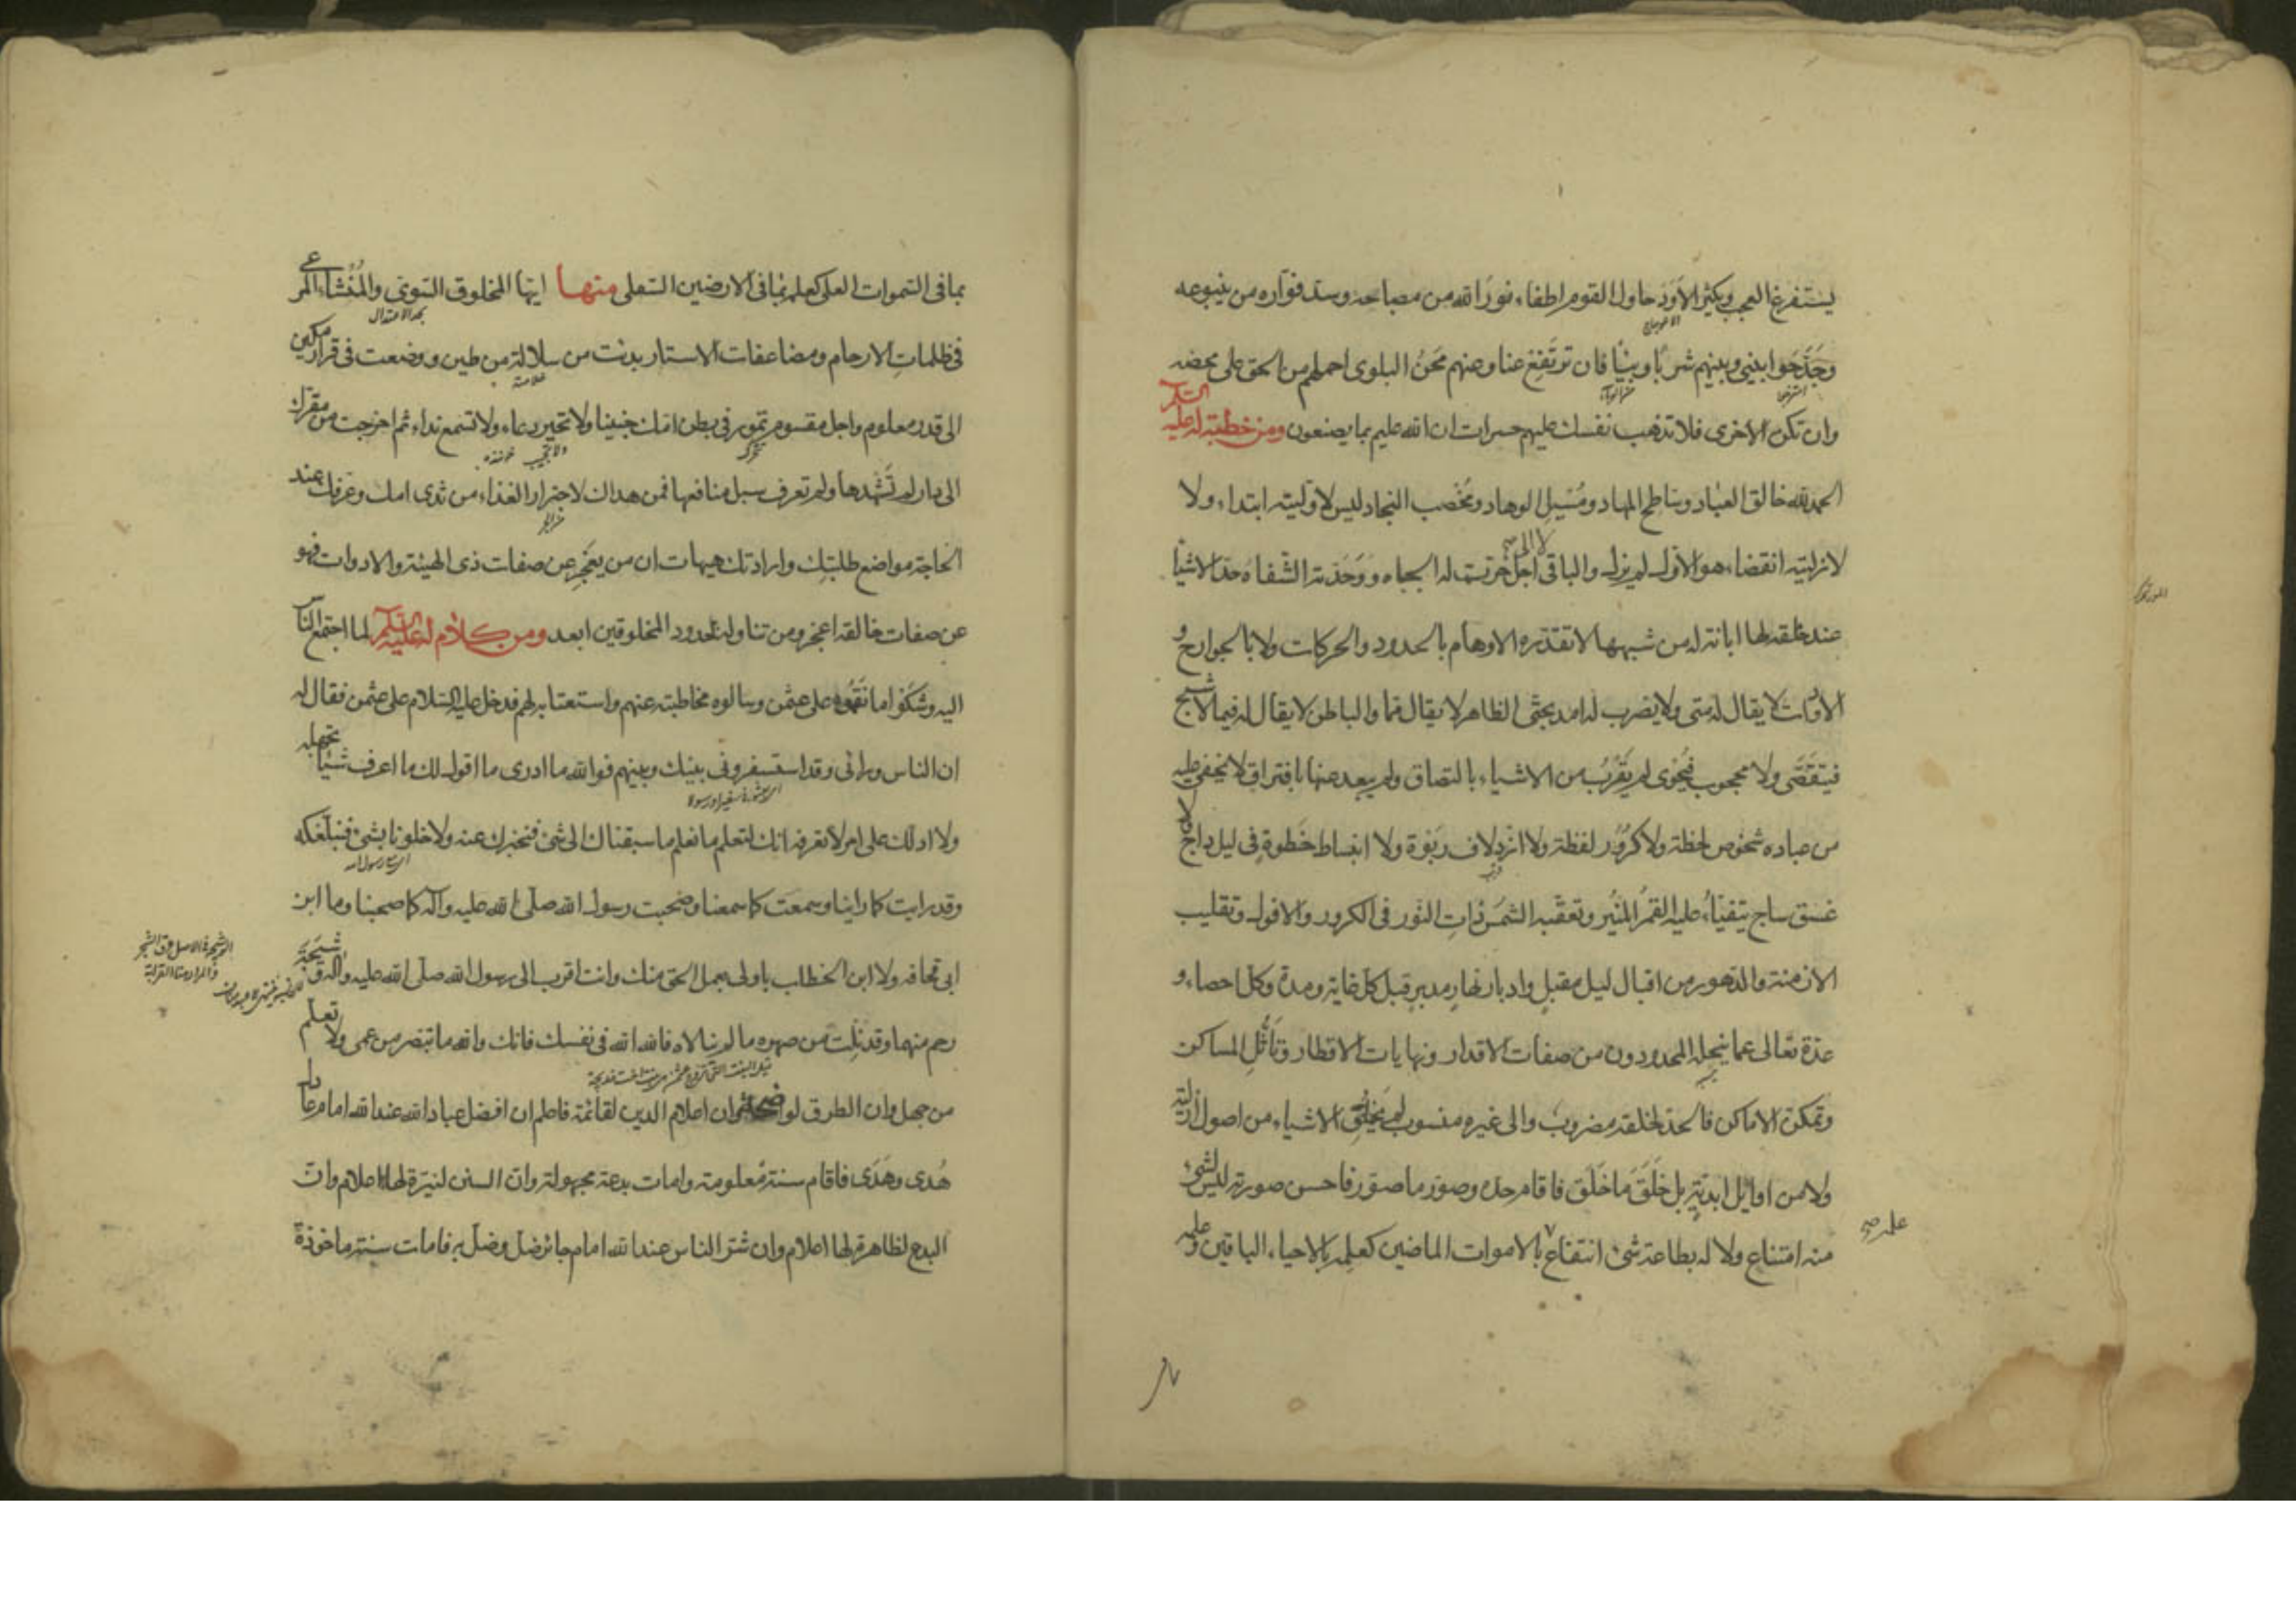 يستفرغ العجب ويكثر الأَوَد حاول القوم اطفاء نور الله من مصباحه وسد فواره من ينبوعه
الاعوجاج
وجَدَحَوا بيني وبينهم شربا وبيئا فان ترتفع عنا وعنهم مِحَنُ البلوى احملهم من الحق على محضه
وان تكن الاخرى فلا تذهب نفسك عليهم حسرات ان الله عليم بما يصنعون ومن خطبة له عليه السلام
الحمد لله خالق العباد وساطح المهاد ومُسيل الوهاد ومُخصب النجاد ليس لاوليته ابتداء ولا
لازليته انقضاء هو الاول لم يزل والباقي بلا اجل خرّت له الجباه ووَحّدته الشفاه حدّ الاشيا
عند خلقه لها ابانة له من شبهها لا تقدّره الاوهام بالحدود والحركات ولا بالجوارح و
الادوات لا يقال له متى ولا يضرب له امد بحتى الظاهر لا يقال مما والباطن لا يقال فيما لا شبح
فيتقصّى ولا محجوب فيُحوى لم يَقْرُب من الاشياء بالتصاق ولم يبعد عنها بافتراق لا يخفى عليه
من عباده شخوص لحظة ولا كرور لفظة ولا ازدِلاف ربوة ولا انبساط خُطوة في ليل داج ولا
غسق ساج يتفيّأ عليه القمرُ المنير وتعقبه الشمس ذات النور في الكرور والافول وتقليب
الازمنة والدهور من اقبال ليل مقبلٍ وادبار نهار مدبرٍ قبل كل غاية ومدة وكل احصاء و
عدة تعالى عما ينحله المحدودون من صفات الاقدار ونهايات الاقطار وتأثُّل المساكن
وتمكن الاماكن فالحد لخلقه مضروب والى غيره منسوب لم يَخلُقِ الاشياء من اصول ازلية
ولا من اوايل ابدية بل خَلَقَ ما خَلَق فاقام حده وصوّر ما صوّر فاحسن صورته ليس لشيء
منه امتناع ولا له بطاعة شيء انتفاع بالاموات الماضين كعلمِه بالاحياء الباقين وعلمه
علمه صح
بما في السموات العلى كعلمه بما في الارضين السفلى منها ايها المخلوق السوي والمُنْشأ المرعي
في ظلماتِ الارحام ومضاعفات الاستار بدئت من سلالة من طين ووضعت في قرار مكين
الى قدر معلوم واجل مقسوم تمور في بطن امك جنينا لا تحير دعاء ولا تسمع نداء ثم اخرجت من مقرك
الى دار لم تَشْهدها ولم تعرف سبل منافعها فمن هداك لاجترار الغذاء من ثدي امك وعرفك عند
الحاجة مواضع طلبتِك وارادتك هيهات ان من يعجز عن صفات ذي الهيئة والادوات فهو
عن صفات خالقه اعجز ومن تناوله بحدود المخلوقين ابعد ومن كلام له عليه السلام لما اجتمع الناس
اليه وشَكَوْا ما نَقَموه على عثمن وسالوه مخاطبته عنهم واستعتابه لهم فدخل عليه السلام على عثمن فقال له
ان الناس ورائي وقد استسفروني بينك وبينهم فوالله ما ادري ما اقول لك ما اعرف شيئا تجهله
ولا ادلك على امر لا تعرفه انك لتعلم ما نعلم ما سبقناك الى شيء فنخبرك عنه ولا خلونا بشيء فنبلّغكه
وقد رايت كما راينا وسمعتَ كما سمعنا وصحبت رسول الله صلى الله عليه وآله كما صحبنا وما ابن
ابي قحافه ولا ابن الخطاب باولى بعمل الحق منك وانت اقرب الى رسول الله صلى الله عليه وآله وشيجَةَ
رحم منهما وقد نِلْت من صهره ما لم ينالاه فالله الله في نفسك فانك والله ما تبصّر من عمى ولا تعلم
من جهل وان الطرق لواضحة وان اعلام الدين لقائمة فاعلم ان افضل عباد الله عند الله امام عادل
هُدي وهَدَى فاقام سنة معلومة وامات بدعة مجهولة وان السنن لنيّرة لها اعلام وان
البدع لظاهرة لها اعلام وان شر الناس عند الله امام جائر ضلّ وضُلّ به فامات سنة ماخوذة